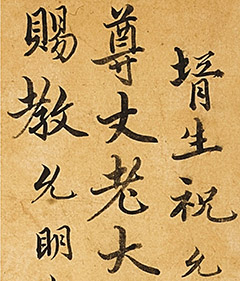 壻生祝允
尊丈老大
賜教允明